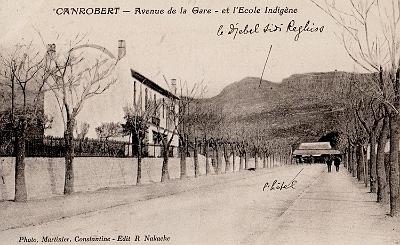 CANROBERT — Avenue de la Gare - et l'Ecole Indigène
le Djebel Sidi Regheiss
l'hôtel
Photo. Martinier, Constantine - Edit R Nakache